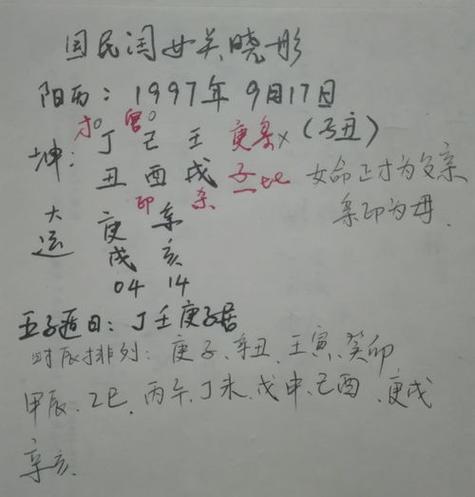 国民闺女关晓彤
阳历：1997年9月17日
才 官
坤：丁 己 壬 庚枭×（子丑）
丑 酉 戌 子比 女命正才为父亲
印 杀 枭印为母.
大运 庚戌 辛亥
04 14
五子遁日：丁壬庚子居
时辰排列：庚子、辛丑、壬寅、癸卯
甲辰、乙巳、丙午、丁未、戊申、己酉、庚戌
辛亥.